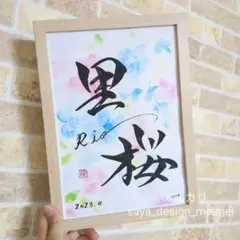 黒
Rio
桜
2023.6
saya_design_meimei